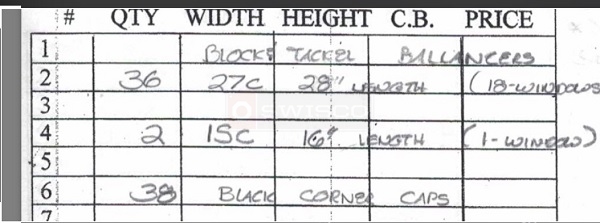 # QTY WIDTH HEIGHT C.B. PRICE
1 BLOCK & TACKEL BALLANCERS
2 36 27C 28" LENGTH (18-WINDOWS
3
4 2 15C 16" LENGTH (1-WINDOW)
5
6 38 BLACK CORNER CAPS
7
SWISCO